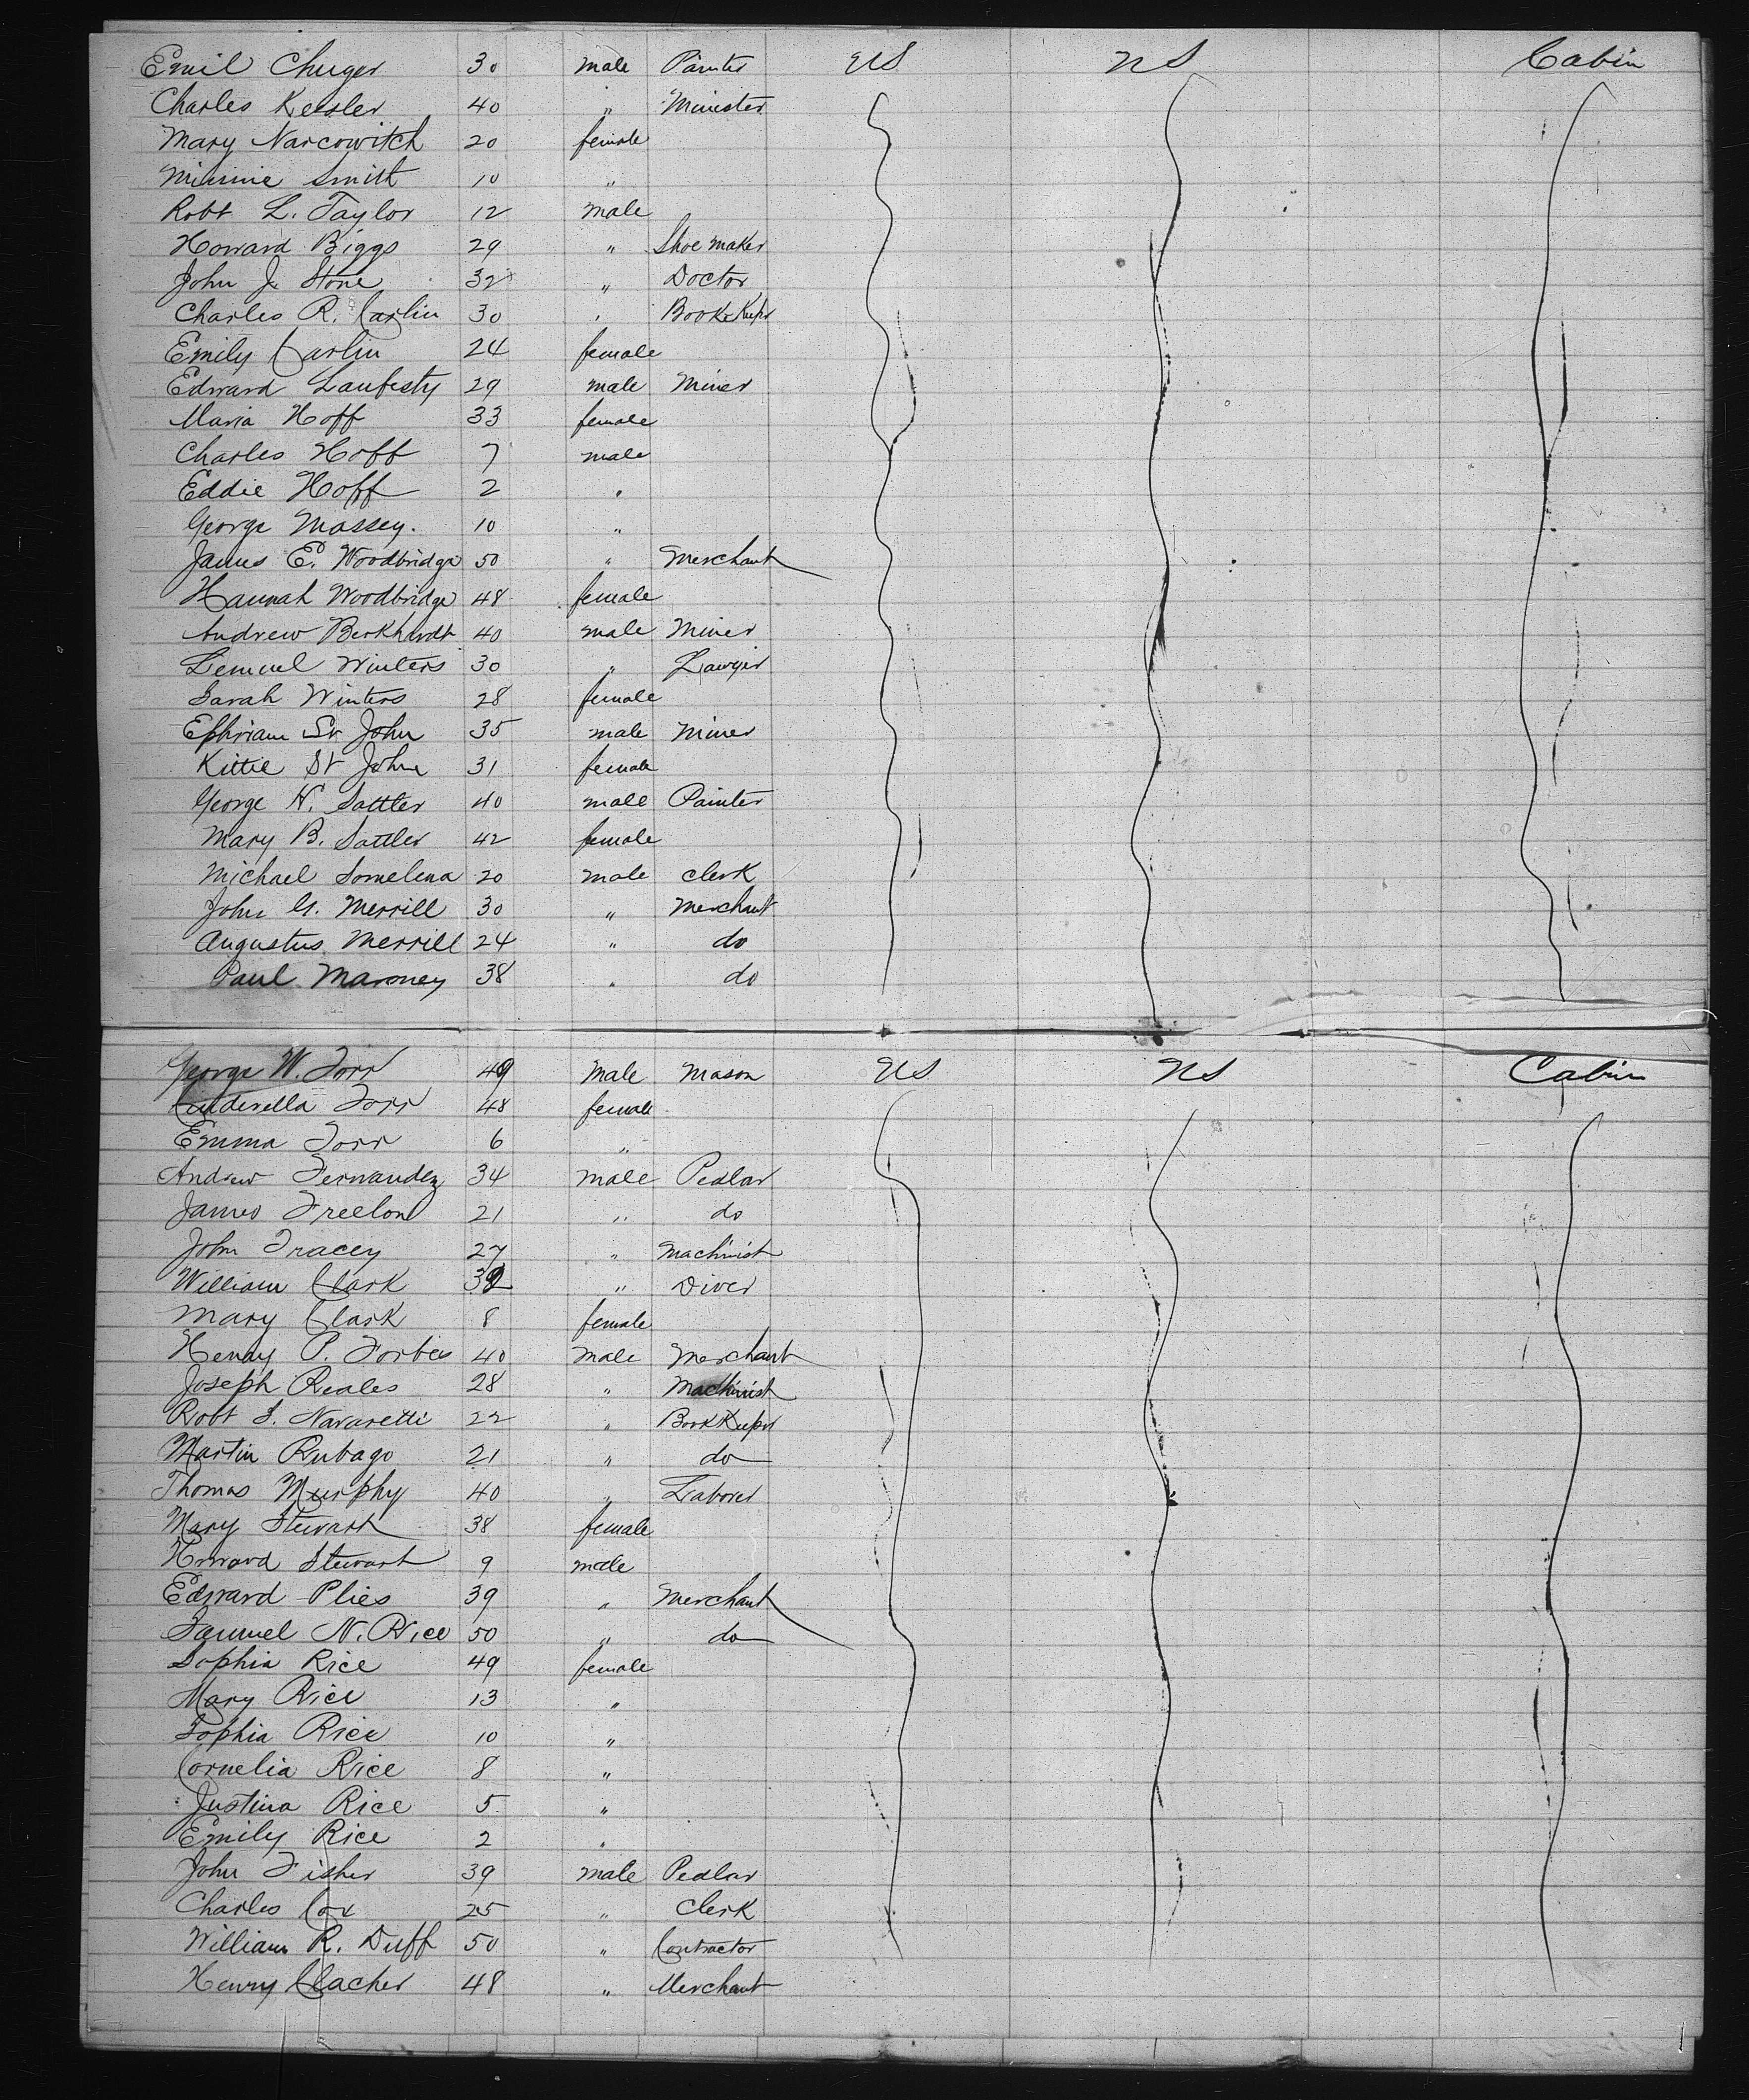 Emil Chuger 30 male Painter US US Cabin
Charles Kessler 40 " Minister
Mary Narcowitch 20 female
Minnie Smith 10 "
Robt L. Taylor 12 male
Howard Biggs 29 " Shoe maker
John J. Stone 32 " Doctor
Charles R. Carlin 30 " Book Keeper
Emily Carlin 24 female
Edward Laufesty 29 male Miner
Maria Hoff 33 female
Charles Hoff 7 male
Eddie Hoff 2 "
George Massey. 10 "
James E. Woodbridge 50 " Merchant
Hannah Woodbridge 48 female
Andrew Berkhardt 40 male Miner
Lemuel Winters 30 " Lawyer
Sarah Winters 28 female
Ephriam St John 35 male Miner
Kittie St John 31 female
George H. Sattler 40 male Painter
Mary B. Sattler 42 female
Michael Somelena 20 male Clerk
John G. Merrill 30 " Merchant
Augustus Merrill 24 " do
Paul Maroney 38 " do
George W. Torr 49 Male Mason US US Cabin
Cinderella Torr 48 female
Emma Torr 6 "
Andrew Fernandez 34 male Pedlar
James Freelon 21 " do
John Tracey 27 " Machinist
William Clark 32 " Diver
Mary Clark 8 female
Henry P. Forbes 40 male Merchant
Joseph Reales 28 " Machinist
Robt S. Navaretti 22 " Book Keeper
Martin Rubago 21 " do
Thomas Murphy 40 " Laborer
Mary Stewart 38 female
Howard Stewart 9 male
Edward Plies 39 " Merchant
Samuel N. Rice 50 " do
Sophia Rice 49 female
Mary Rice 13 "
Sophia Rice 10 "
Cornelia Rice 8 "
Justina Rice 5 "
Emily Rice 2 "
John Fisher 39 male Pedlar
Charles Cox 25 " Clerk
William R. Duff 50 " Contractor
Henry Clacher 48 " Merchant